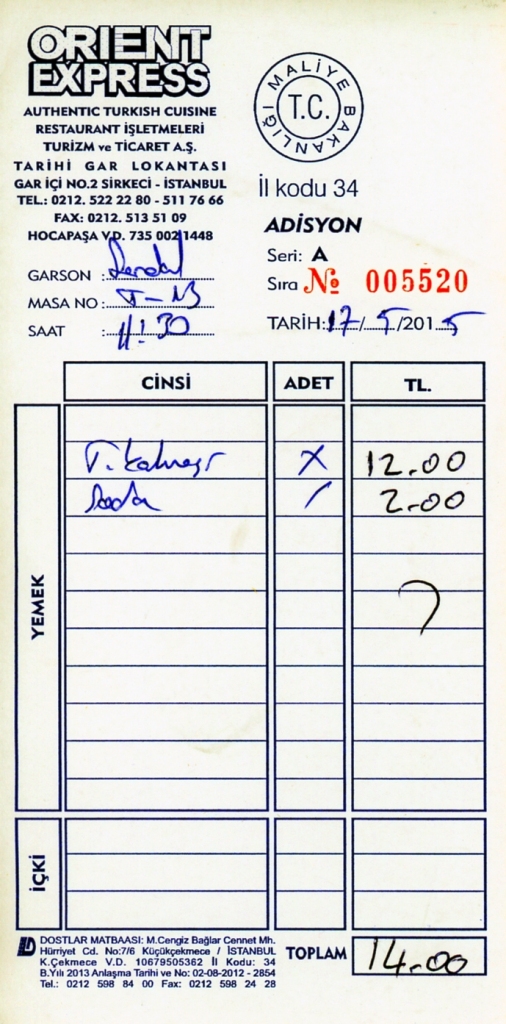 ORIENT
EXPRESS
AUTHENTIC TURKISH CUISINE
RESTAURANT İŞLETMELERİ
TURİZM ve TİCARET A.Ş.
TARİHİ GAR LOKANTASI
GAR İÇİ NO.2 SİRKECİ - İSTANBUL
TEL.: 0212. 522 22 80 - 511 76 66
FAX: 0212. 513 51 09
HOCAPAŞA V.D. 735 002 1448
MALİYE BAKANLIĞI
T.C.
İl kodu 34
ADİSYON
Seri: A
Sıra № 005520
TARİH: 17/5/2015
GARSON :
MASA NO :
SAAT : 11:30
CİNSİ ADET TL.
YEMEK
12.00
Soda / 2.00
İÇKİ
TOPLAM 14.00
DOSTLAR MATBAASI: M.Cengiz Bağlar Cennet Mh.
Hürriyet Cd. No:7/6 Küçükçekmece / İSTANBUL
K.Çekmece V.D. 10679505362 İl Kodu: 34
B.Yılı 2013 Anlaşma Tarihi ve No: 02-08-2012 - 2854
Tel.: 0212 598 84 00 Fax: 0212 598 24 28